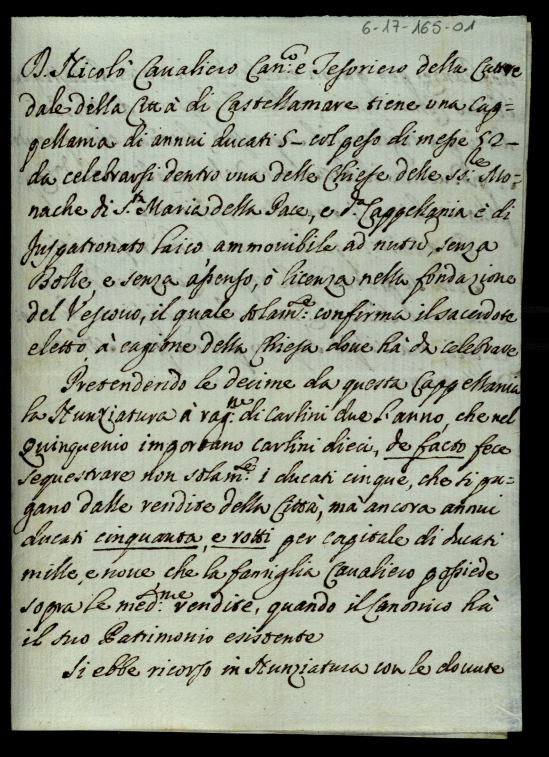 6-17-165-01
D. Nicolò Cavaliero Can.co e Tesoriero della Catte
dale della Città di Castellamare tiene una Cap=
pellania di annui ducati 5- col peso di messe 52-
da celebrarsi dentro una delle Chiese delle SS.e Mo=
nache di S.ta Maria della Pace, e d.a Cappellania è di
Juspatronato laico ammovibile ad nutu, senza
Bolle, e senza assenso, ò licenza nella fondazione
del Vescovo, il quale solam.te confirma il sacerdote
eletto à cagione della Chiesa dove hà da celebrare
Pretendendo le decime da questa Cappellania
la Nunziatura à rag.ne di carlini due l'anno, che nel
quinquenio importano carlini dieci, de facto fece
sequestrare non solam.te i ducati cinque, che si pa=
gano dalle rendite della Città, mà ancora annui
ducati cinquanta, e rotti per capitale di ducati
mille, e nove che la famiglia Cavaliero possiede
sopra le med.me rendite, quando il Canonico hà
il suo Patrimonio esistente
Si ebbe ricorso in Nunziatura con le dovute